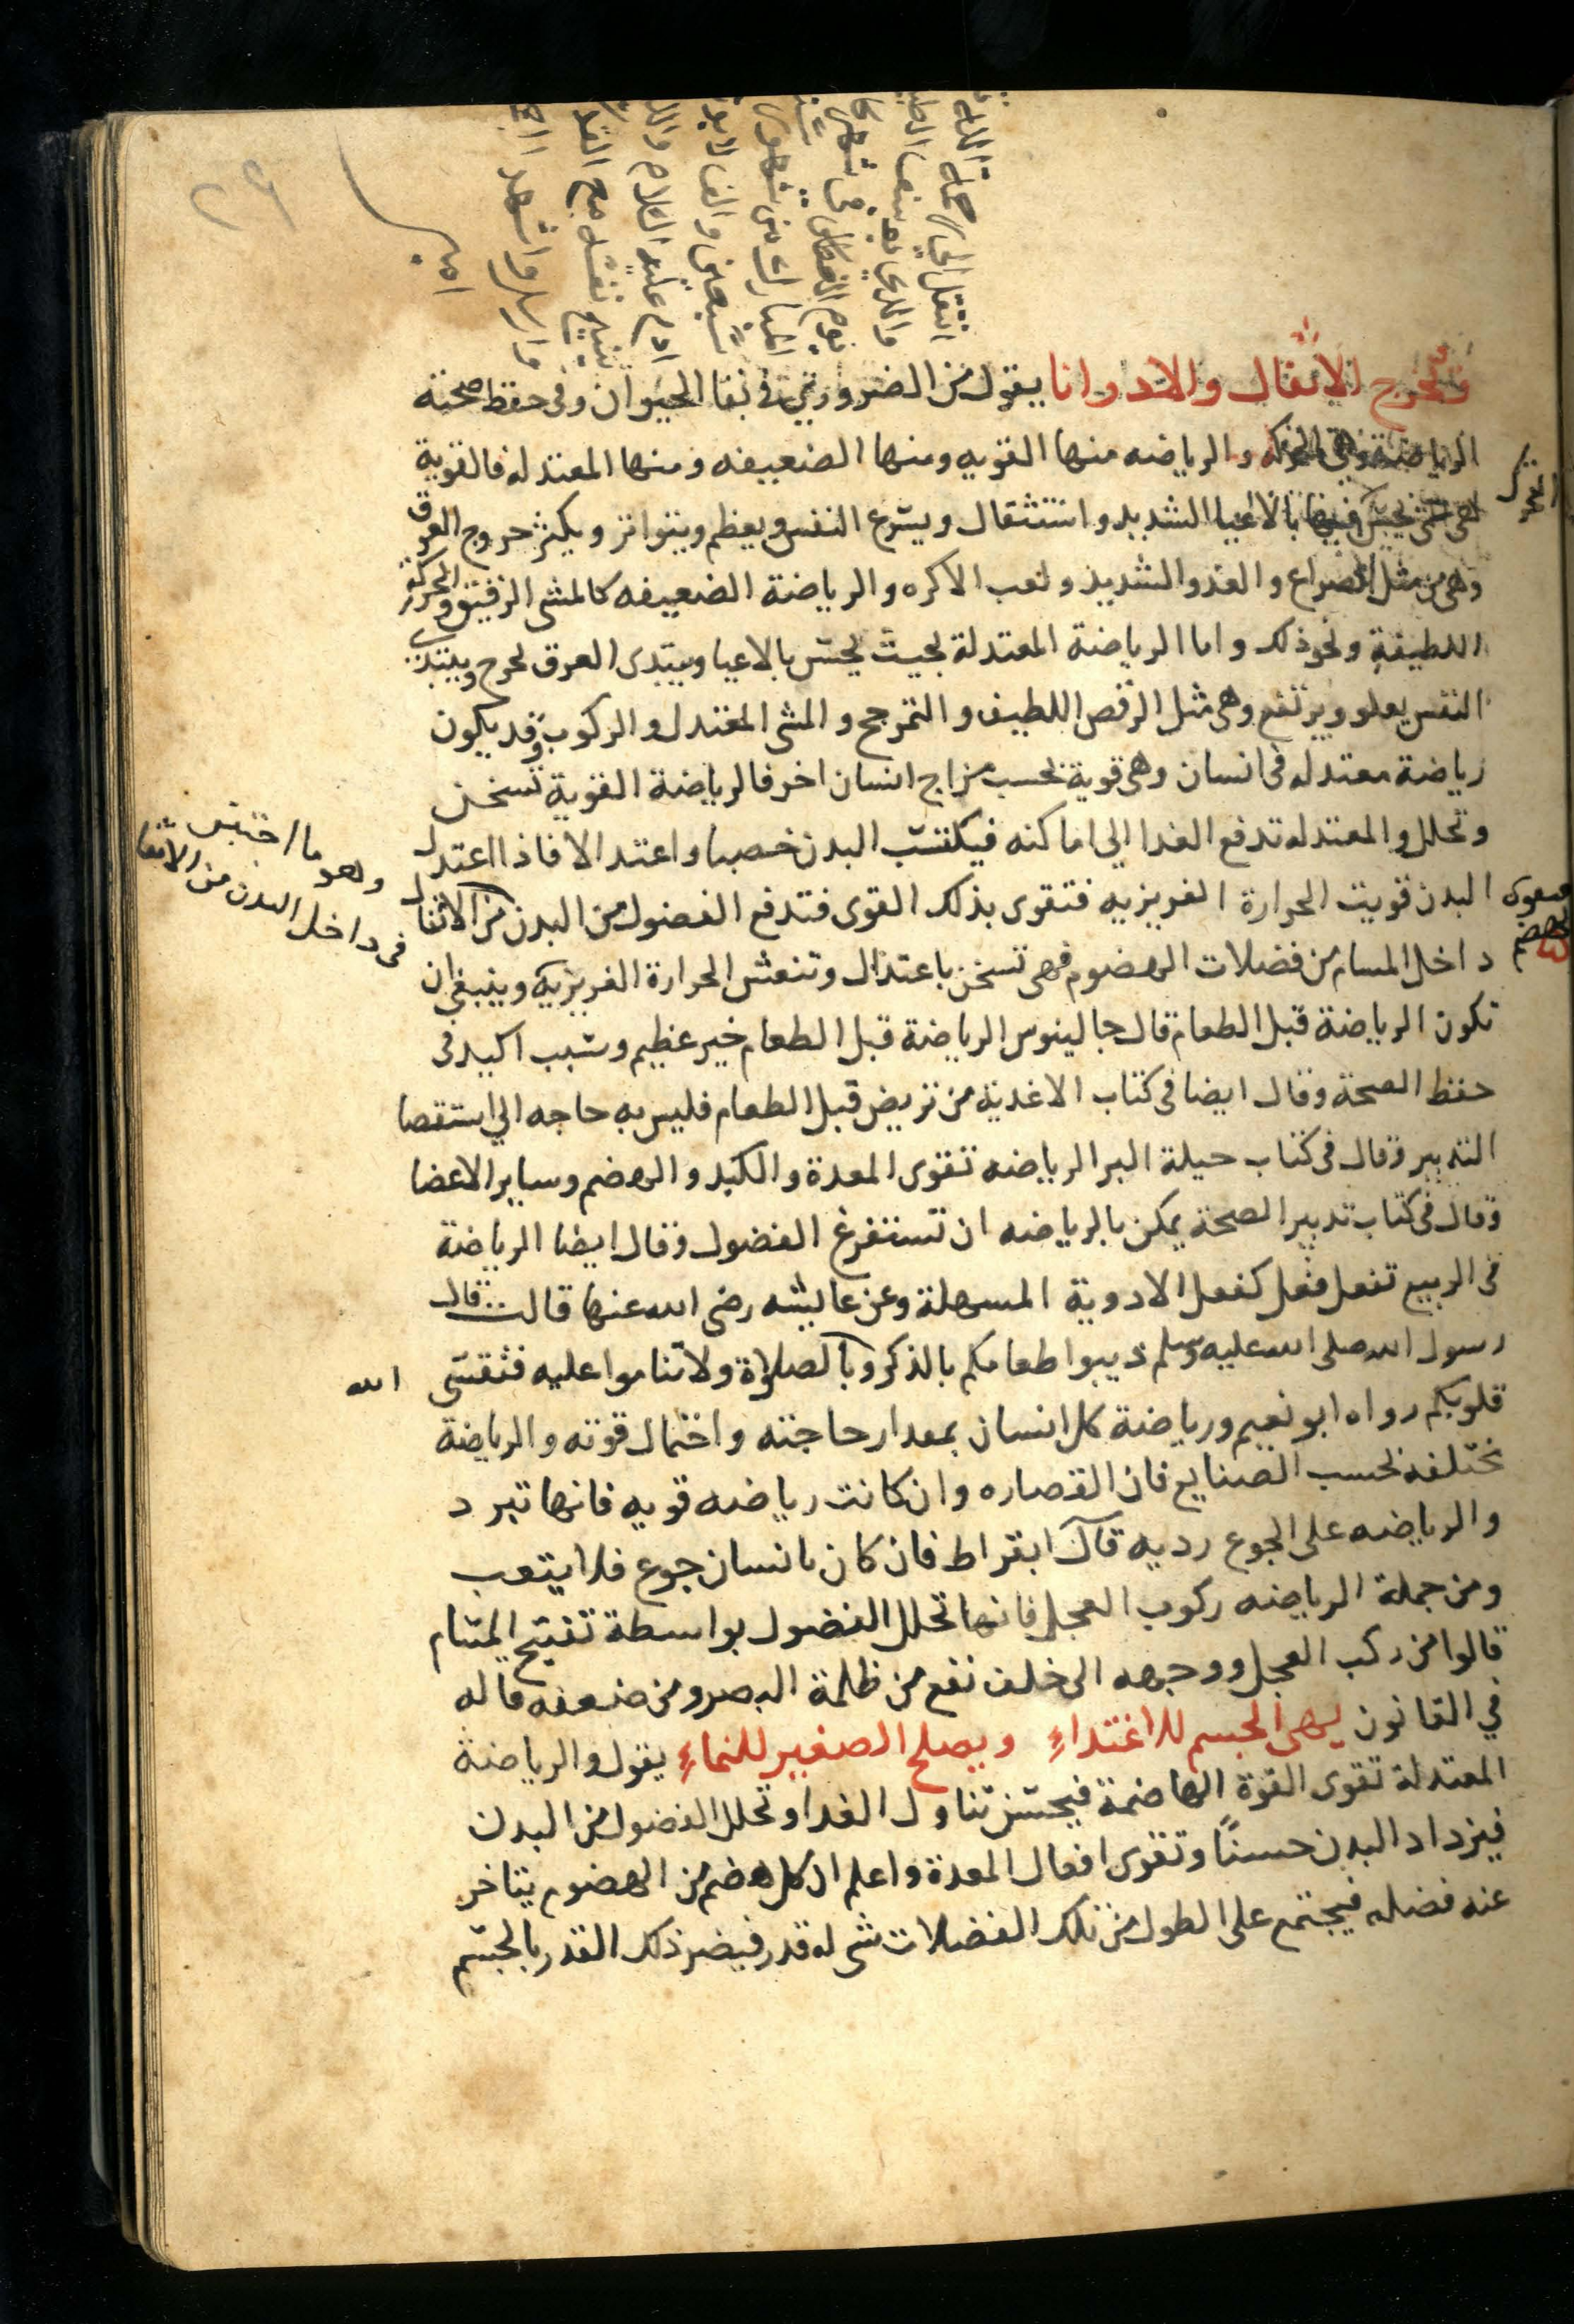 وتخرج الاثفال والادرانا يقول من الضروري في بقا الحيوان وفي حفظ صحته
الرياضة وهي الحركه والرياضه منها القويه ومنها الضعيفه ومنها المعتدله فالقوية
هي التي يحس فيها بالاعيا الشديد واستثقال ويسرع النفس ويعظم ويتواتر ويكثر خروج العرق
وهي من مثل الصراع والعدو الشديد ولعب الاكره والرياضة الضعيفه كالمشي الرفيق والحركة
اللطيفة ونحو ذلك واما الرياضة المعتدلة بحيث يحس بالاعيا ويبتدى العرق يخرج ويبتدى
النفس يعلو ويرتفع وهي مثل الرقص اللطيف والتمرجح والمشي المعتدل والركوب وقد يكون
رياضة معتدله في انسان وهي قوية بحسب مزاج انسان اخر فالرياضة القوية تسخن
وتحلل والمعتدله تدفع الغدا الي اماكنه فيكتسب البدن خصبا واعتدالا فاذا اعتدل
البدن قويت الحرارة الغريزيه فتقوى بذلك القوى فتدفع الفضول من البدن من الاثفال
داخل المسام من فضلات الهضوم فهي تسخن باعتدال وتنعش الحرارة الغريزية وينبغي ان
تكون الرياضة قبل الطعام قال جالينوس الرياضة قبل الطعام خير عظيم وسبب اكيد في
حفظ الصحة وقال ايضا في كتاب الاغدية من تريض قبل الطعام فليس به حاجه الي استقصا
التدبير وقال في كتاب حيلة البر الرياضه تقوى المعدة والكبد والهضم وساير الاعضا
وقال في كتاب تدبير الصحة يمكن بالرياضه ان تستفرغ الفضول وقال ايضا الرياضة
في الربيع تفعل فعل كفعل الادوية المسهلة وعن عايشه رضي الله عنها قالت قال
رسول الله صلى الله عليه وسلم ذيبوا طعامكم بالذكر وبالصلاة ولا تناموا عليه فتقسى
قلوبكم رواه ابو نعيم ورياضة كل انسان بمعدار حاجته واختمال قوته والرياضة
تختلفه بحسب الصنايع فان القصاره وان كانت رياضه قويه فانها تبرد
والرياضه على الجوع رديه قال ابقراط فان كان بانسان جوع فلا يتعب
ومن جملة الرياضه ركوب العجل فانها تحلل الفضول بواسطة تفتيح المسام
قالوا من ركب العجل ووجهه الى خلف نفع من ظلمة البصر ومن ضعفه قاله
في القانون يهي الجسم للاغتداء ويصلح الصغير للنماء يقول والرياضة
المعتدلة تقوى القوة الهاضمة فيحسن تناول الغدا وتحلل الفضول من البدن
فيزداد البدن حسنًا وتقوى افعال المعدة واعلم ان كل هضم من الهضوم يتاخر
عنه فضله فيجتمع على الطول من تلك الفضلات شي له قدر فيضر ذلك القدر بالجسم
وهو ما احتبس
في داخل البدن من الاثفا
الله
امين
٢٩